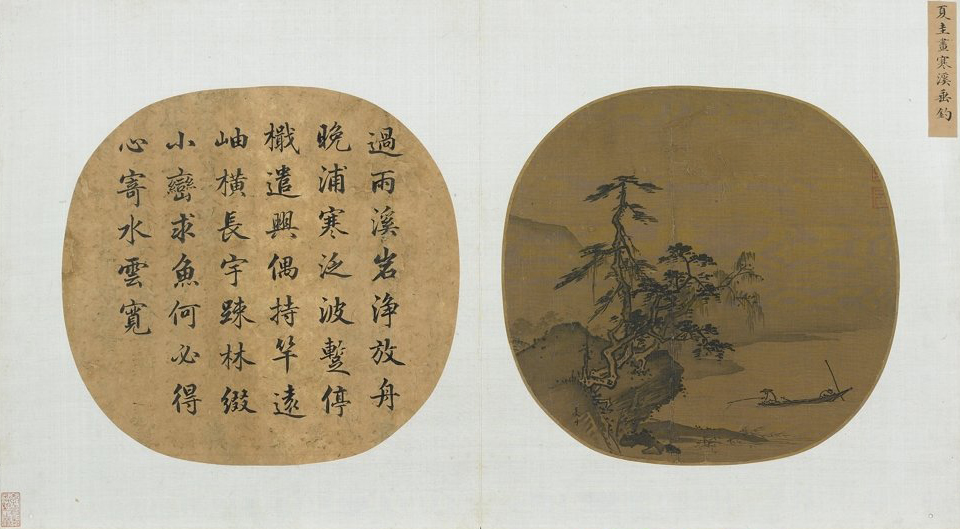 夏圭畫寒溪垂釣
過雨溪岩淨放舟
晚浦寒泛波蹔停
檝遣興偶持竿遠
岫橫長宇踈林綴
小巒求魚何必得
心寄水雲寬